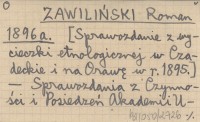 ZAWILIŃSKI Roman
1896a. [Sprawozdanie z wy-
cieczki etnologicznej w Cza-
deckie i na Orawę w r. 1895.]
— Sprawozdania z Czynno-
ści i Posiedzeń Akademii U-